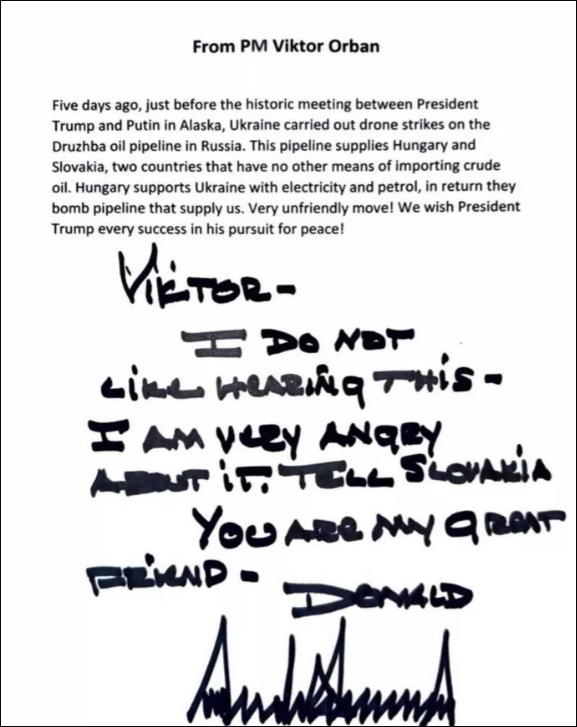 From PM Viktor Orban
Five days ago, just before the historic meeting between President
Trump and Putin in Alaska, Ukraine carried out drone strikes on the
Druzhba oil pipeline in Russia. This pipeline supplies Hungary and
Slovakia, two countries that have no other means of importing crude
oil. Hungary supports Ukraine with electricity and petrol, in return they
bomb pipeline that supply us. Very unfriendly move! We wish President
Trump every success in his pursuit for peace!
VIKTOR-
I DO NOT
LIKE HEARING THIS -
I AM VERY ANGRY
ABOUT IT. TELL SLOVAKIA
YOU ARE MY GREAT
FRIEND - DONALD